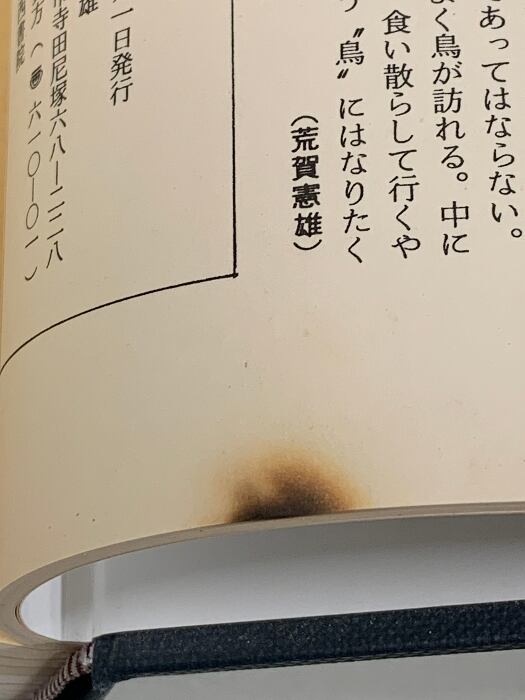 あってはならない。
く鳥が訪れる。中に
食い散らして行くや
〝鳥〟にはなりたく
（荒賀憲雄）
一日発行
雄
寺田尼塚六八―二二八
方（〠六一〇―〇一）